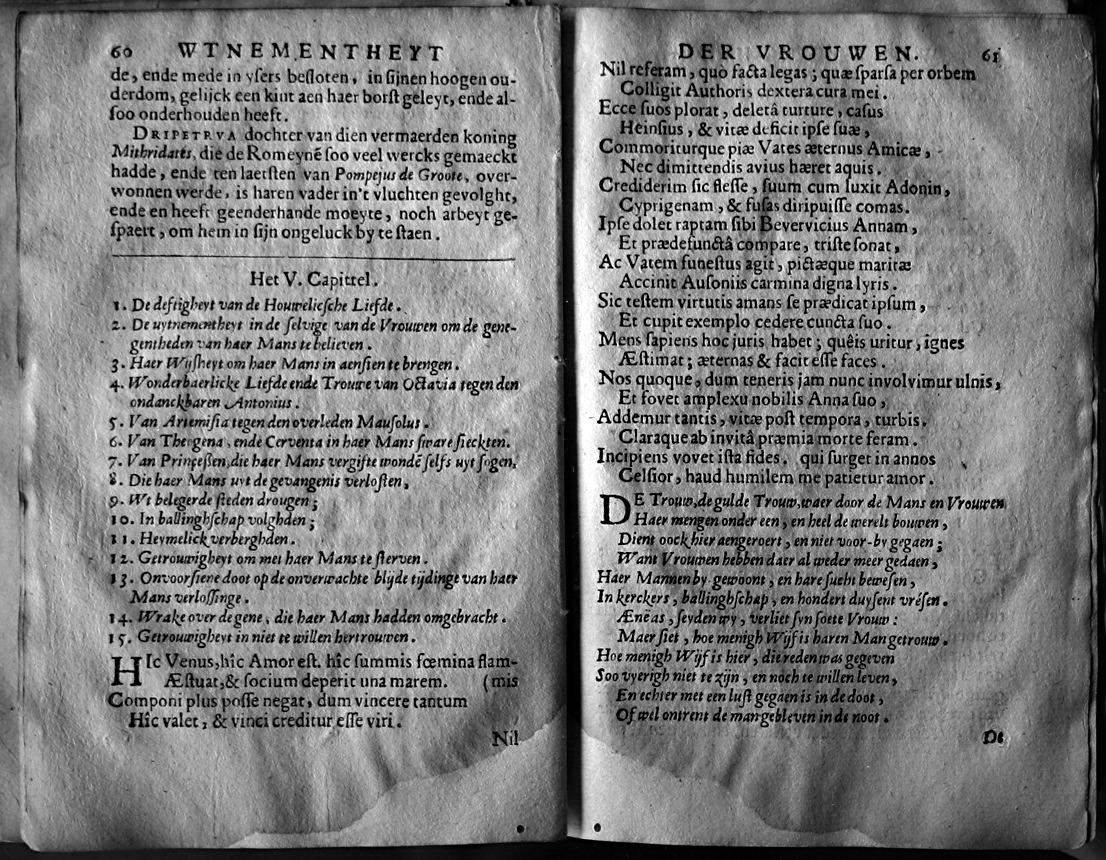 60 WTNEMENTHEYT
de, ende mede in ysers besloten, in sijnen hoogen ou-
derdom, gelijck een kint aen haer borst geleyt, ende al-
soo onderhouden heeft.
DRIPETRVA dochter van dien vermaerden koning
Mithridates, die de Romeynē soo veel wercks gemaeckt
hadde, ende ten laetsten van Pompejus de Groote, over-
wonnen werde, is haren vader in't vluchten gevolght,
ende en heeft geenderhande moeyte, noch arbeyt ge-
spaert, om hem in sijn ongeluck by te staen.
Het V. Capittel.
1. De deftigheyt van de Houwelicsche Liefde.
2. De uytnementheyt in de selvige van de Vrouwen om de gene-
gentheden van haer Mans te believen.
3. Haer Wijsheyt om haer Mans in aensien te brengen.
4. Wonderbaerlicke Liefde ende Trouwe van Octavia tegen den
ondanckbaren Antonius.
5. Van Artemisia tegen den overleden Mausolus.
6. Van Theogena, ende Cerventa in haer Mans sware sieckten.
7. Van Princeßen, die haer Mans vergifte wondē selfs uyt sogen,
8. Die haer Mans uyt de gevangenis verlosten,
9. Wt belegerde steden drougen;
10. In ballinghschap volghden;
11. Heymelick verberghden.
12. Getrouwigheyt om met haer Mans te sterven.
13. Onvoorsiene doot op de onverwachte blijde tijdinge van haer
Mans verlossinge.
14. Wrake over de gene, die haer Mans hadden omgebracht.
15. Getrouwigheyt in niet te willen hertrouwen.
HIc Venus, hîc Amor est. hîc summis fœmina flam-
Æstuat, & socium deperit una marem. (mis
Componi plus posse negat, dum vincere tantum
Hîc valet, & vinci creditur esse viri.
Nil
DER VROUWEN. 61
Nil referam, quò facta legas; quæ sparsa per orbem
Colligit Authoris dextera cura mei.
Ecce suos plorat, deletâ turture, casus
Heinsius, & vitæ deficit ipse suæ,
Commoriturque piæ Vates æternus Amicæ,
Nec dimittendis avius hæret aquis.
Crediderim sic flesse, suum cum luxit Adonin,
Cyprigenam, & fusas diripuisse comas.
Ipse dolet raptam sibi Bevervicius Annam,
Et prædefunctâ compare, triste sonat,
Ac Vatem funestus agit, pictæque maritæ
Accinit Ausoniis carmina digna lyris.
Sic testem virtutis amans se prædicat ipsum,
Et cupit exemplo cedere cuncta suo.
Mens sapiens hoc juris habet; quêis uritur, ignes
Æstimat; æternas & facit esse faces.
Nos quoque, dum teneris jam nunc involvimur ulnis,
Et fovet amplexu nobilis Anna suo,
Addemur tantis, vitæ post tempora, turbis.
Claraque ab invitâ præmia morte feram.
Incipiens vovet ista fides, qui surget in annos
Celsior, haud humilem me patietur amor.
DE Trouw, de gulde Trouw, waer door de Mans en Vrouwen
Haer mengen onder een, en heel de werelt bouwen,
Dient oock hier aengeroert, en niet voor-by gegaen;
Want Vrouwen hebben daer al weder meer gedaen,
Haer Mannen by-gewoont, en hare sucht bewesen,
In kerckers, ballinghschap, en hondert duysent vrésen.
Ænëas, seyden wy, verliet syn soete Vrouw:
Maer siet, hoe menigh Wijf is haren Man getrouw.
Hoe menigh Wijf is hier, die reden was gegeven
Soo vyerigh niet te zijn, en noch te willen leven,
En echter met een lust gegaen is in de doot,
Of wel ontrent de man gebleven in de noot.
De